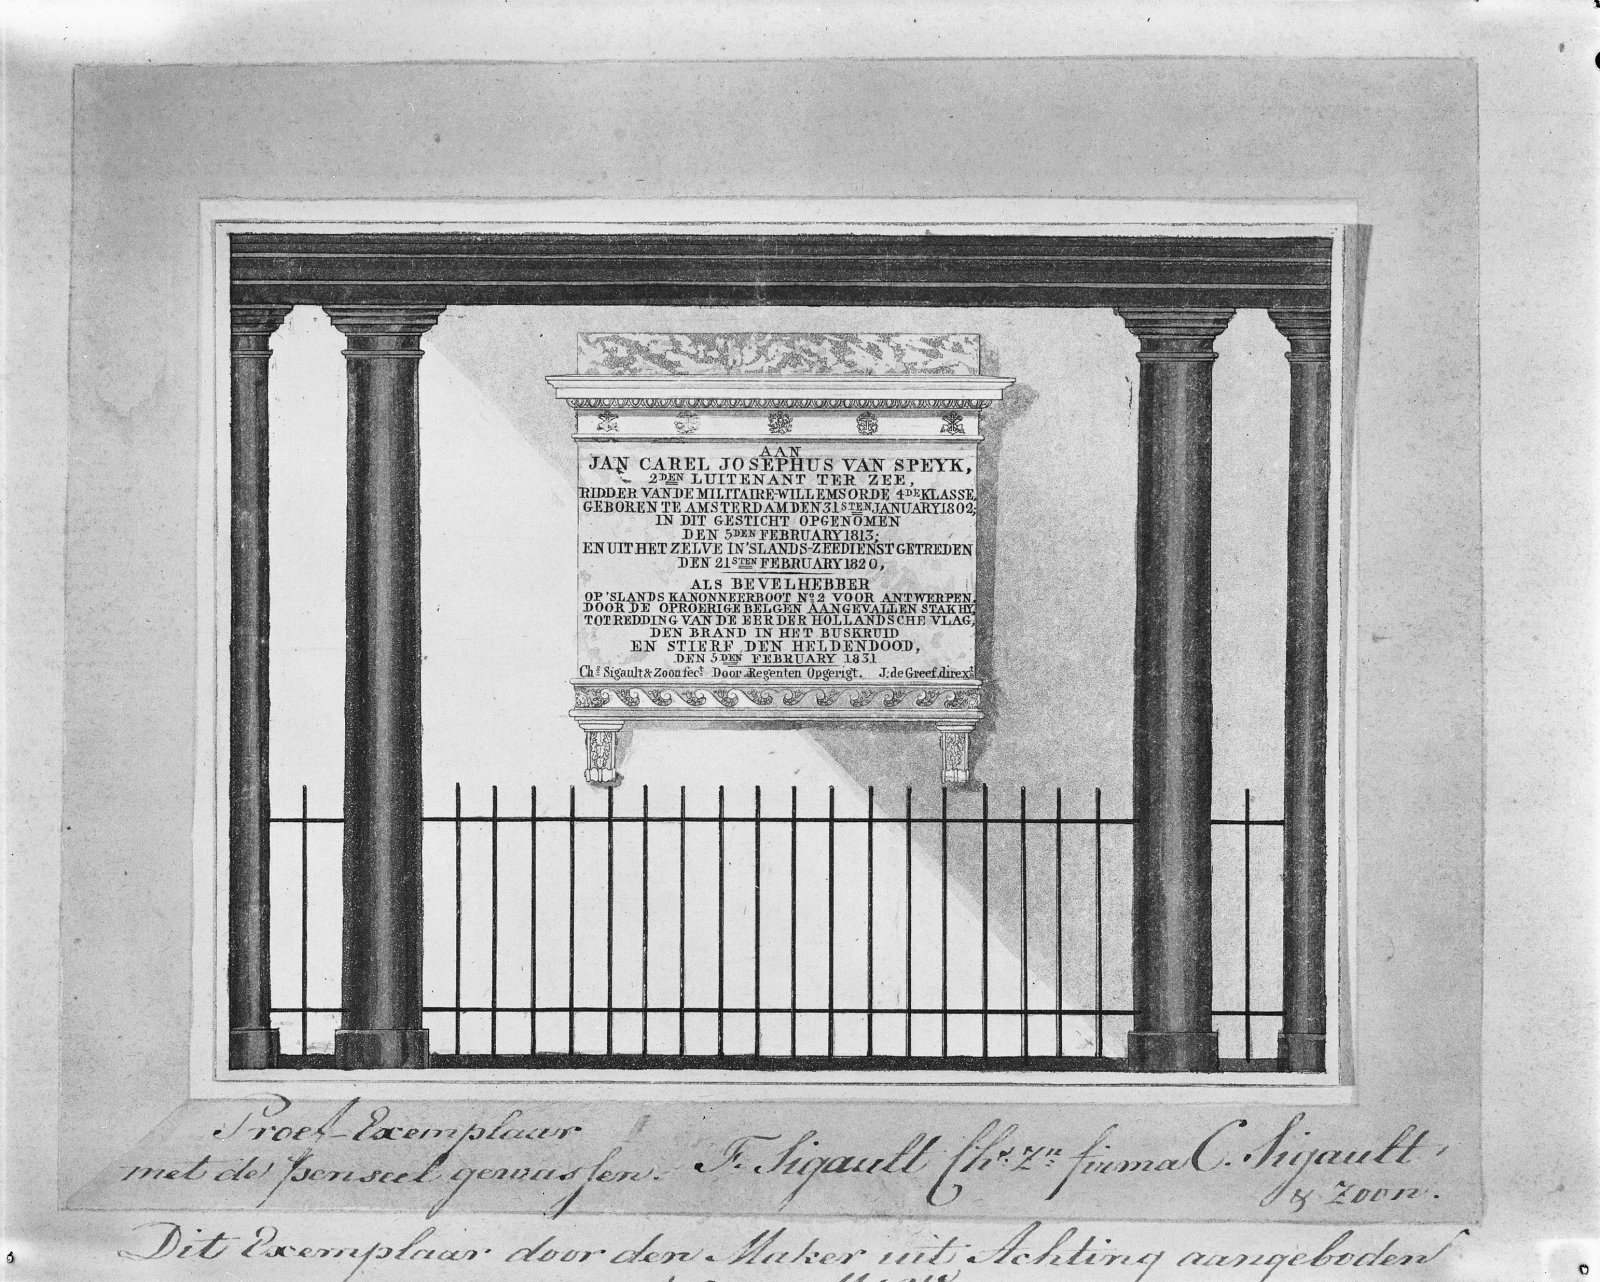 AAN
JAN CAREL JOSEPHUS VAN SPEYK,
2DEN LUITENANT TER ZEE,
RIDDER VAN DE MILITAIRE-WILLEMSORDE 4DE KLASSE,
GEBOREN TE AMSTERDAM DEN 31STEN JANUARY 1802;
IN DIT GESTICHT OPGENOMEN
DEN 5DEN FEBRUARY 1813;
EN UIT HET ZELVE IN 'SLANDS-ZEEDIENST GETREDEN
DEN 21STEN FEBRUARY 1820,
ALS BEVELHEBBER
OP 'SLANDS KANONNEERBOOT No. 2 VOOR ANTWERPEN,
DOOR DE OPROERIGE BELGEN AANGEVALLEN STAK HY,
TOT REDDING VAN DE EER DER HOLLANDSCHE VLAG,
DEN BRAND IN HET BUSKRUID
EN STIERF DEN HELDENDOOD,
DEN 5DEN FEBRUARY 1831
Chs Sigault & Zoon fect. Door Regenten Opgerigt. J: de Greef. dirext.
Proef-Exemplaar
met de penseel gewassen. F. Sigault Chs. Zn: firma C. Sigault
& Zoon.
Dit Exemplaar door den Maker uit Achting aangeboden